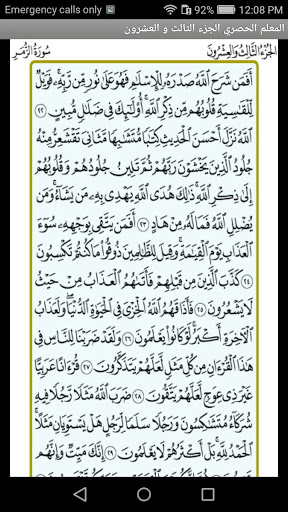 Emergency calls only 59% 12:08 PM
المعلم الحصري الجزء الثالث و العشرون
سُورَةُ الزُّمَرِ الجُزْءُ الثَّالِثُ وَالعِشْرُونَ
أَفَمَن شَرَحَ ٱللَّهُ صَدْرَهُۥ لِلْإِسْلَٰمِ فَهُوَ عَلَىٰ نُورٍ مِّن رَّبِّهِۦۚ فَوَيْلٌ
لِّلْقَٰسِيَةِ قُلُوبُهُم مِّن ذِكْرِ ٱللَّهِۚ أُو۟لَٰٓئِكَ فِى ضَلَٰلٍ مُّبِينٍ ٢٢
ٱللَّهُ نَزَّلَ أَحْسَنَ ٱلْحَدِيثِ كِتَٰبًا مُّتَشَٰبِهًا مَّثَانِىَ تَقْشَعِرُّ مِنْهُ
جُلُودُ ٱلَّذِينَ يَخْشَوْنَ رَبَّهُمْ ثُمَّ تَلِينُ جُلُودُهُمْ وَقُلُوبُهُمْ
إِلَىٰ ذِكْرِ ٱللَّهِۚ ذَٰلِكَ هُدَى ٱللَّهِ يَهْدِى بِهِۦ مَن يَشَآءُۚ وَمَن
يُضْلِلِ ٱللَّهُ فَمَا لَهُۥ مِنْ هَادٍ ٢٣ أَفَمَن يَتَّقِى بِوَجْهِهِۦ سُوٓءَ
ٱلْعَذَابِ يَوْمَ ٱلْقِيَٰمَةِۚ وَقِيلَ لِلظَّٰلِمِينَ ذُوقُوا۟ مَا كُنتُمْ تَكْسِبُونَ
٢٤ كَذَّبَ ٱلَّذِينَ مِن قَبْلِهِمْ فَأَتَىٰهُمُ ٱلْعَذَابُ مِنْ حَيْثُ
لَا يَشْعُرُونَ ٢٥ فَأَذَاقَهُمُ ٱللَّهُ ٱلْخِزْىَ فِى ٱلْحَيَوٰةِ ٱلدُّنْيَاۖ وَلَعَذَابُ
ٱلْءَاخِرَةِ أَكْبَرُۚ لَوْ كَانُوا۟ يَعْلَمُونَ ٢٦ وَلَقَدْ ضَرَبْنَا لِلنَّاسِ فِى
هَٰذَا ٱلْقُرْءَانِ مِن كُلِّ مَثَلٍ لَّعَلَّهُمْ يَتَذَكَّرُونَ ٢٧ قُرْءَانًا عَرَبِيًّا
غَيْرَ ذِى عِوَجٍ لَّعَلَّهُمْ يَتَّقُونَ ٢٨ ضَرَبَ ٱللَّهُ مَثَلًا رَّجُلًا فِيهِ
شُرَكَآءُ مُتَشَٰكِسُونَ وَرَجُلًا سَلَمًا لِّرَجُلٍ هَلْ يَسْتَوِيَانِ مَثَلًاۚ
ٱلْحَمْدُ لِلَّهِۚ بَلْ أَكْثَرُهُمْ لَا يَعْلَمُونَ ٢٩ إِنَّكَ مَيِّتٌ وَإِنَّهُم